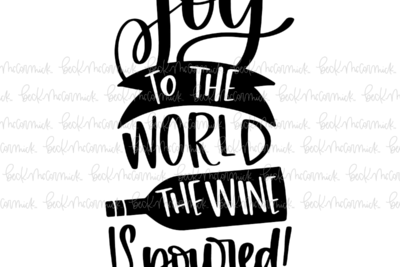 Joy
TO THE
WORLD
THE WINE
IS poured!